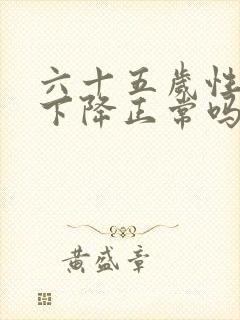 六十五歲性
下降正常吗
黄盛章